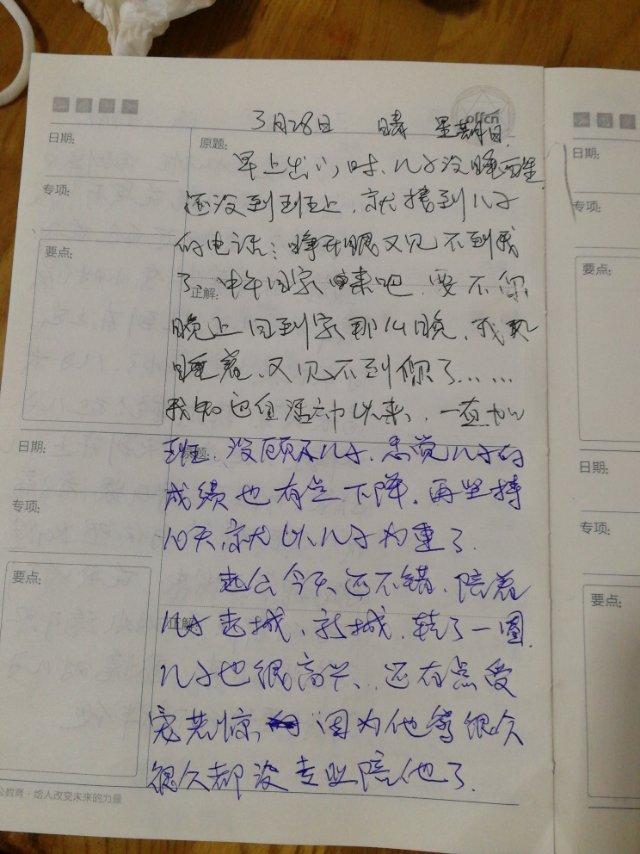 offcn
3月28日 晴 星期日
日期:
原题:
早上出门时,儿子没睡醒
专项:
还没到班上,就接到儿子
的电话:睁开眼又见不到我
要点:
了,中午回家来吧,要不你
正解:
晚上回到家那么晚,我就
睡着,又见不到你了……
活动以来,一直加
日期:
班,没顾及儿子,总觉儿子的
专项:
成绩也有些下降,再坚持
10天,就以儿子为重了.
要点:
老公今天还不错,陪着
正解:
儿子老城、新城,转了一圈.
儿子也很高兴、还有点受
宠若惊,因为他爸很久
很久都没专业陪他了.
公教育·给人改变未来的力量
日期:
专项:
要点:
日期:
专项:
要点: